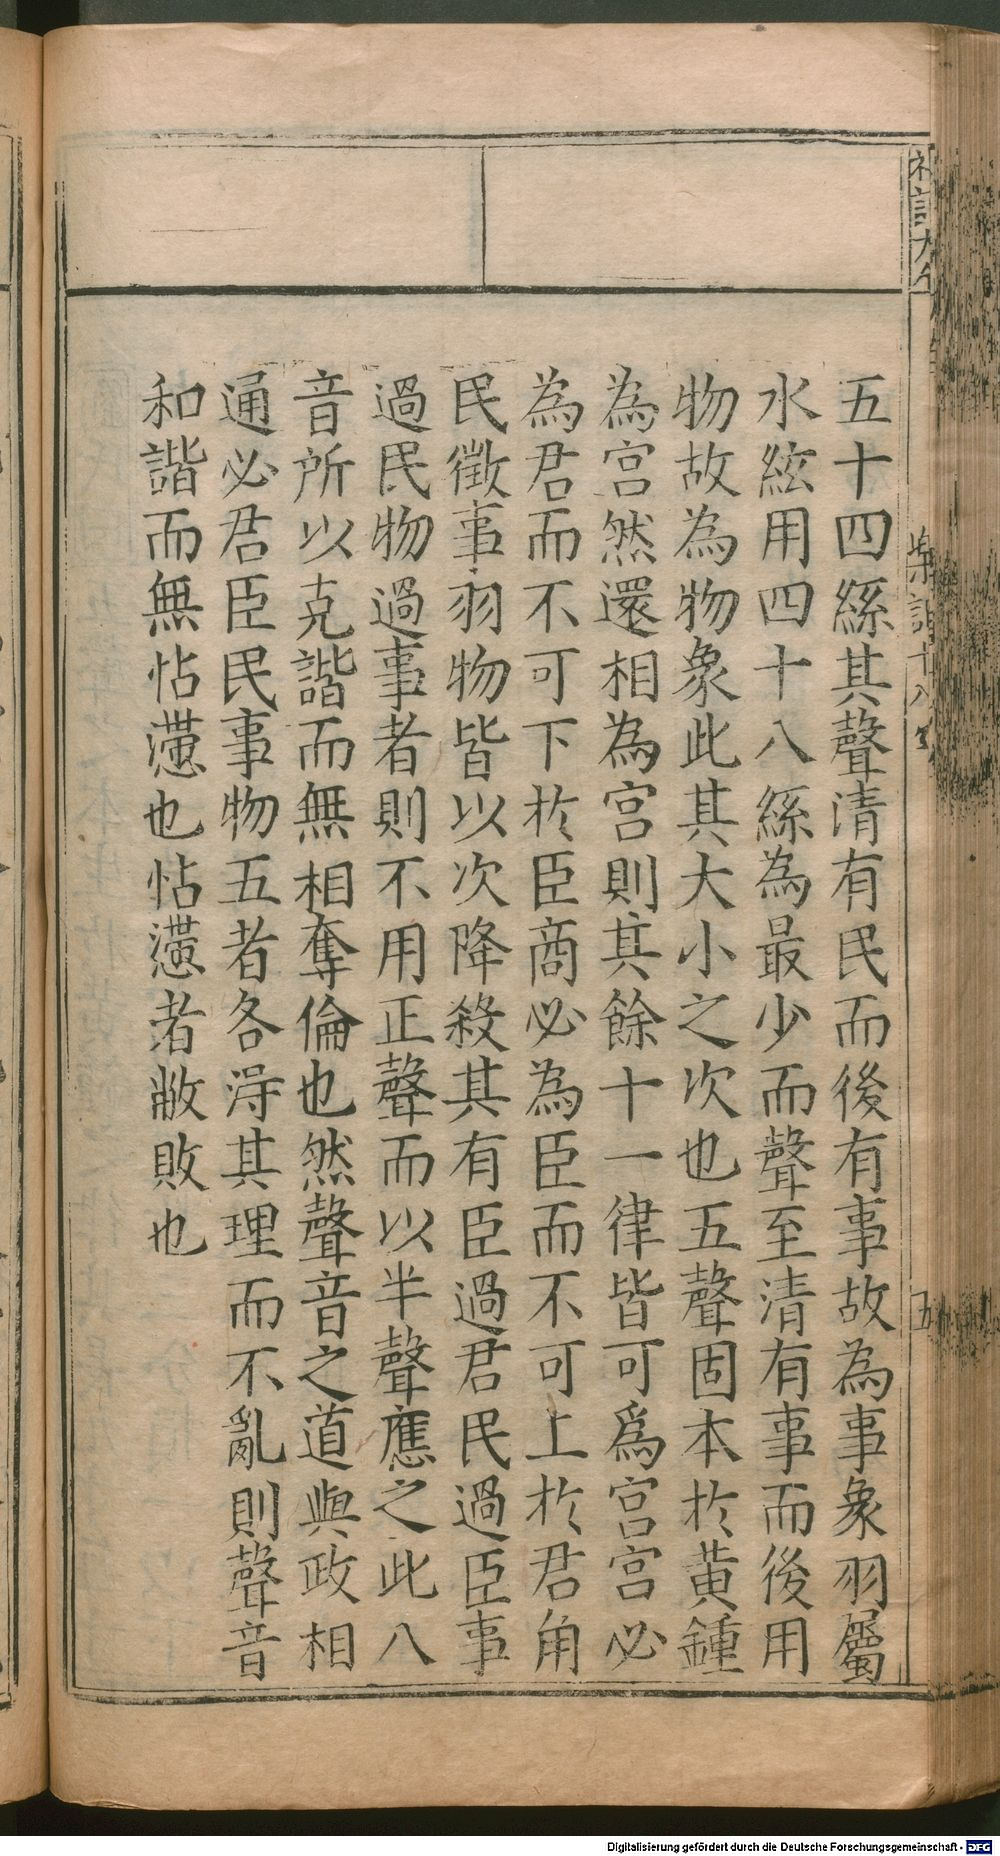 五十四絲其聲清有民而後有事故為事象羽屬
水絃用四十八絲為最少而聲至清有事而後用
物故為物象此其大小之次也五聲固本於黃鍾
為宮然還相為宮則其餘十一律皆可爲宮宮必
為君而不可下於臣商必為臣而不可上於君角
民徵事羽物皆以次降殺其有臣過君民過臣事
過民物過事者則不用正聲而以半聲應之此八
音所以克諧而無相奪倫也然聲音之道與政相
通必君臣民事物五者各得其理而不亂則聲音
和諧而無怗懘也怗懘者敝敗也
Digitalisierung gefördert durch die Deutsche Forschungsgemeinschaft - DFG